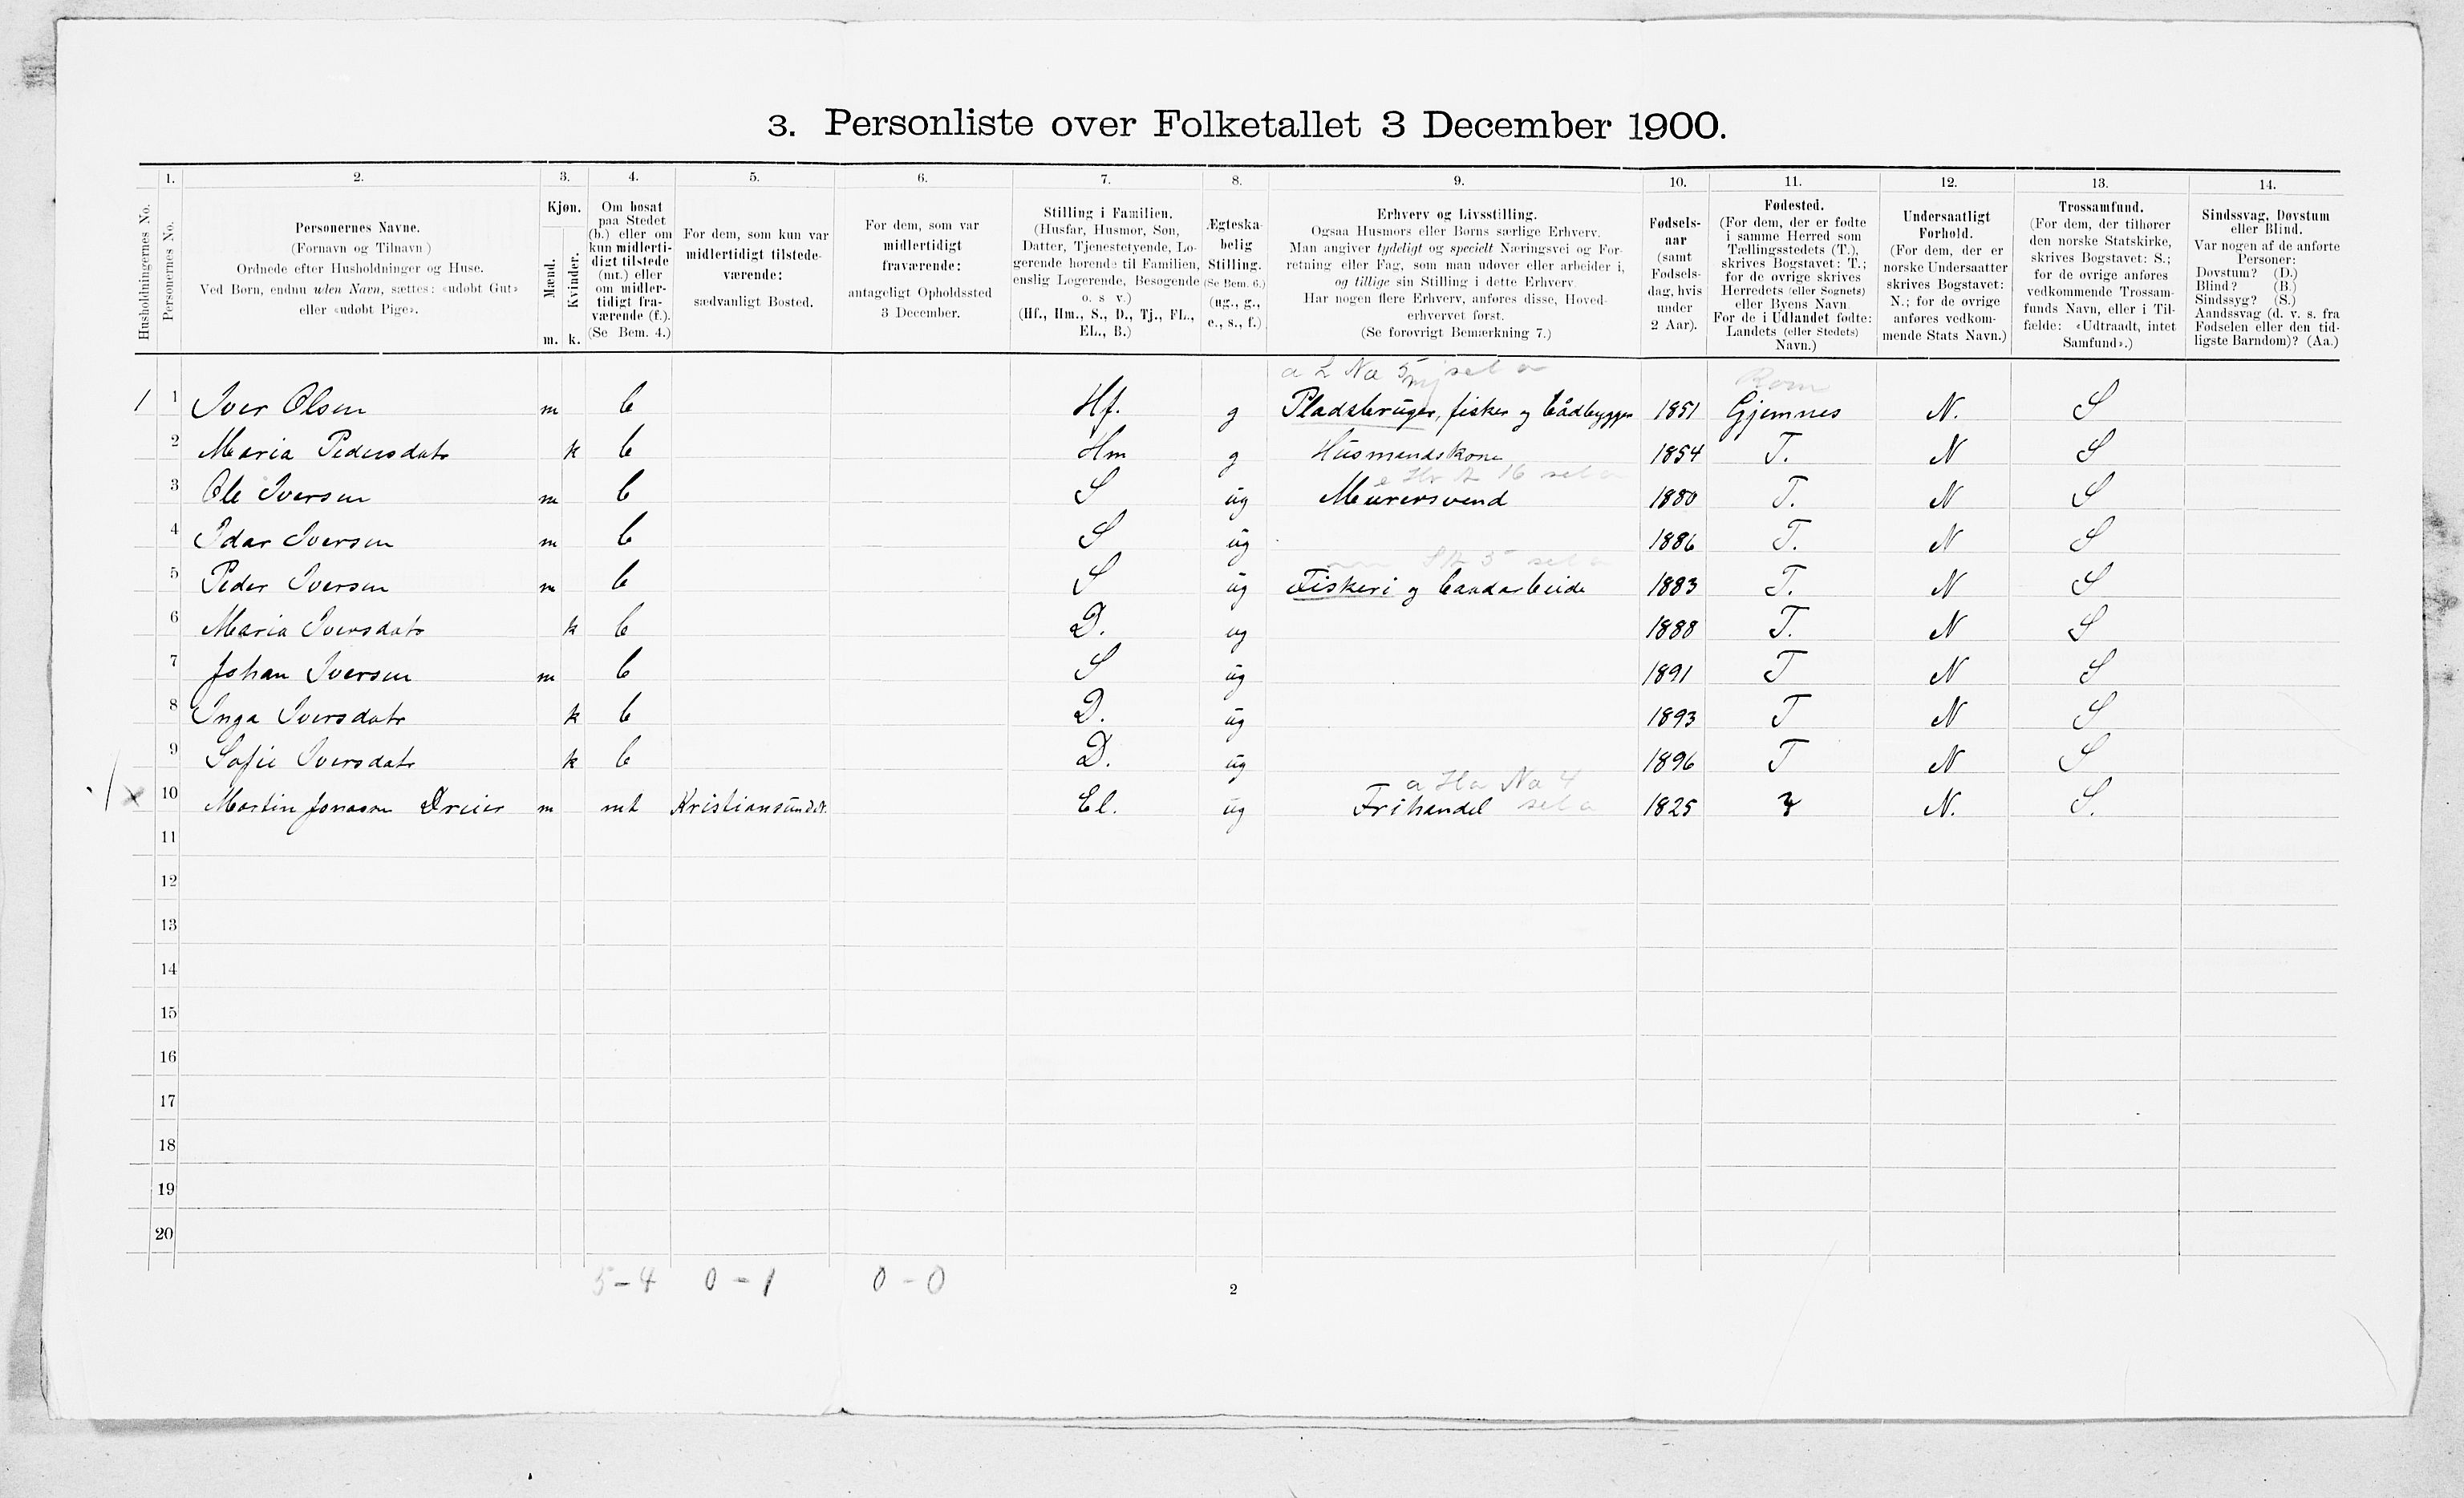 3. Personliste over Folketallet 3 December 1900.
Husholdningernes No.
1.
Personernes No.
2.
Personernes Navne.
(Fornavn og Tilnavn)
Ordnede efter Husholdninger og Huse.
Ved Børn, endnu uden Navn, sættes: «udøbt Gut»
eller «udøbt Pige».
3.
Kjøn.
Mænd.
Kvinder.
m. k.
4.
Om bosat
paa Stedet
(b.) eller om
kun midlerti-
digt tilstede
(mt.) eller
om midler-
tidigt fra-
værende (f.).
(Se Bem. 4.)
5.
For dem, som kun var
midlertidigt tilstede-
værende:
sædvanligt Bosted.
6.
For dem, som var
midlertidigt
fraværende:
antageligt Opholdssted
3 December.
7.
Stilling i Familien.
(Husfar, Husmor, Søn,
Datter, Tjenestetyende, Lo-
gerende hørende til Familien,
enslig Logerende, Besøgende
o. s v.)
(Hf., Hm., S., D., Tj., FL.,
EL., B.)
8.
Ægteska-
belig
Stilling.
(Se Bem. 6.)
(ug., g.,
e., s., f.)
9.
Erhverv og Livsstilling.
Ogsaa Husmors eller Børns særlige Erhverv.
Man angiver tydeligt og specielt Næringsvei og For-
retning eller Fag, som man udøver eller arbeider i,
og tillige sin Stilling i dette Erhverv.
Har nogen flere Erhverv, anføres disse, Hoved-
erhvervet først.
(Se forøvrigt Bemærkning 7.)
10.
Fødsels-
aar
(samt
Fødsels-
dag, hvis
under
2 Aar).
11.
Fødested.
(For dem, der er fødte
i samme Herred som
Tællingsstedets (T.),
skrives Bogstavet: T.;
for de øvrige skrives
Herredets (eller Sognets)
eller Byens Navn.
For de i Udlandet fødte:
Landets (eller Stedets)
Navn.)
12.
Undersaatligt
Forhold.
(For dem, der er
norske Undersaatter
skrives Bogstavet:
N.; for de øvrige
anføres vedkom-
mende Stats Navn.)
13.
Trossamfund.
(For dem, der tilhører
den norske Statskirke,
skrives Bogstavet: S.;
for de øvrige anføres
vedkommende Trossam-
funds Navn, eller i Til-
fælde: «Udtraadt, intet
Samfund».)
14.
Sindssvag, Døvstum
eller Blind.
Var nogen af de anførte
Personer:
Døvstum? (D.)
Blind? (B.)
Sindssyg? (S.)
Aandssvag (d. v. s. fra
Fødselen eller den tid-
ligste Barndom)? (Aa.)
1 1 Iver Olsen m b Hf. g Pladsbruger, fisker og bådbygger 1851 Gjemnes N. S
2 Maria Pedersdatr k b Hm g Husmandskone 1854 T. N S
3 Ole Iversen m b S ug Murersvend 1880 T. N S
4 Idar Iversen m b S ug 1886 T. N S
5 Peder Iversen m b S ug Fiskeri og baadarbeide 1883 T. N S
6 Maria Iversdatr k b D. ug 1888 T. N S
7 Johan Iversen m b S ug 1891 T N S
8 Inga Iversdatr k b D. ug 1893 T N S
9 Sofie Iversdatr k b D. ug 1896 T N S
a Ha No 4
x 10 Martin Jonason Dreier m mt Kristiansund N. El. ug Frihandel sel a 1825 N. S.
11
12
13
14
15
16
17
18
19
20
5 - 4 0 - 1 0 - 0
2